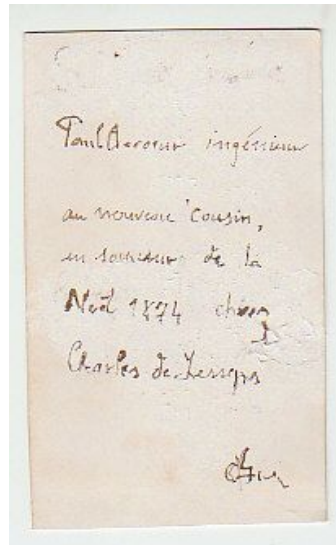 Paul ingénieur
au nouveau cousin,
en souvenir de la
Noël 1874 chez
Charles de Lesseps